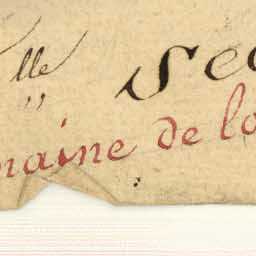 lle
Sec
maine de la